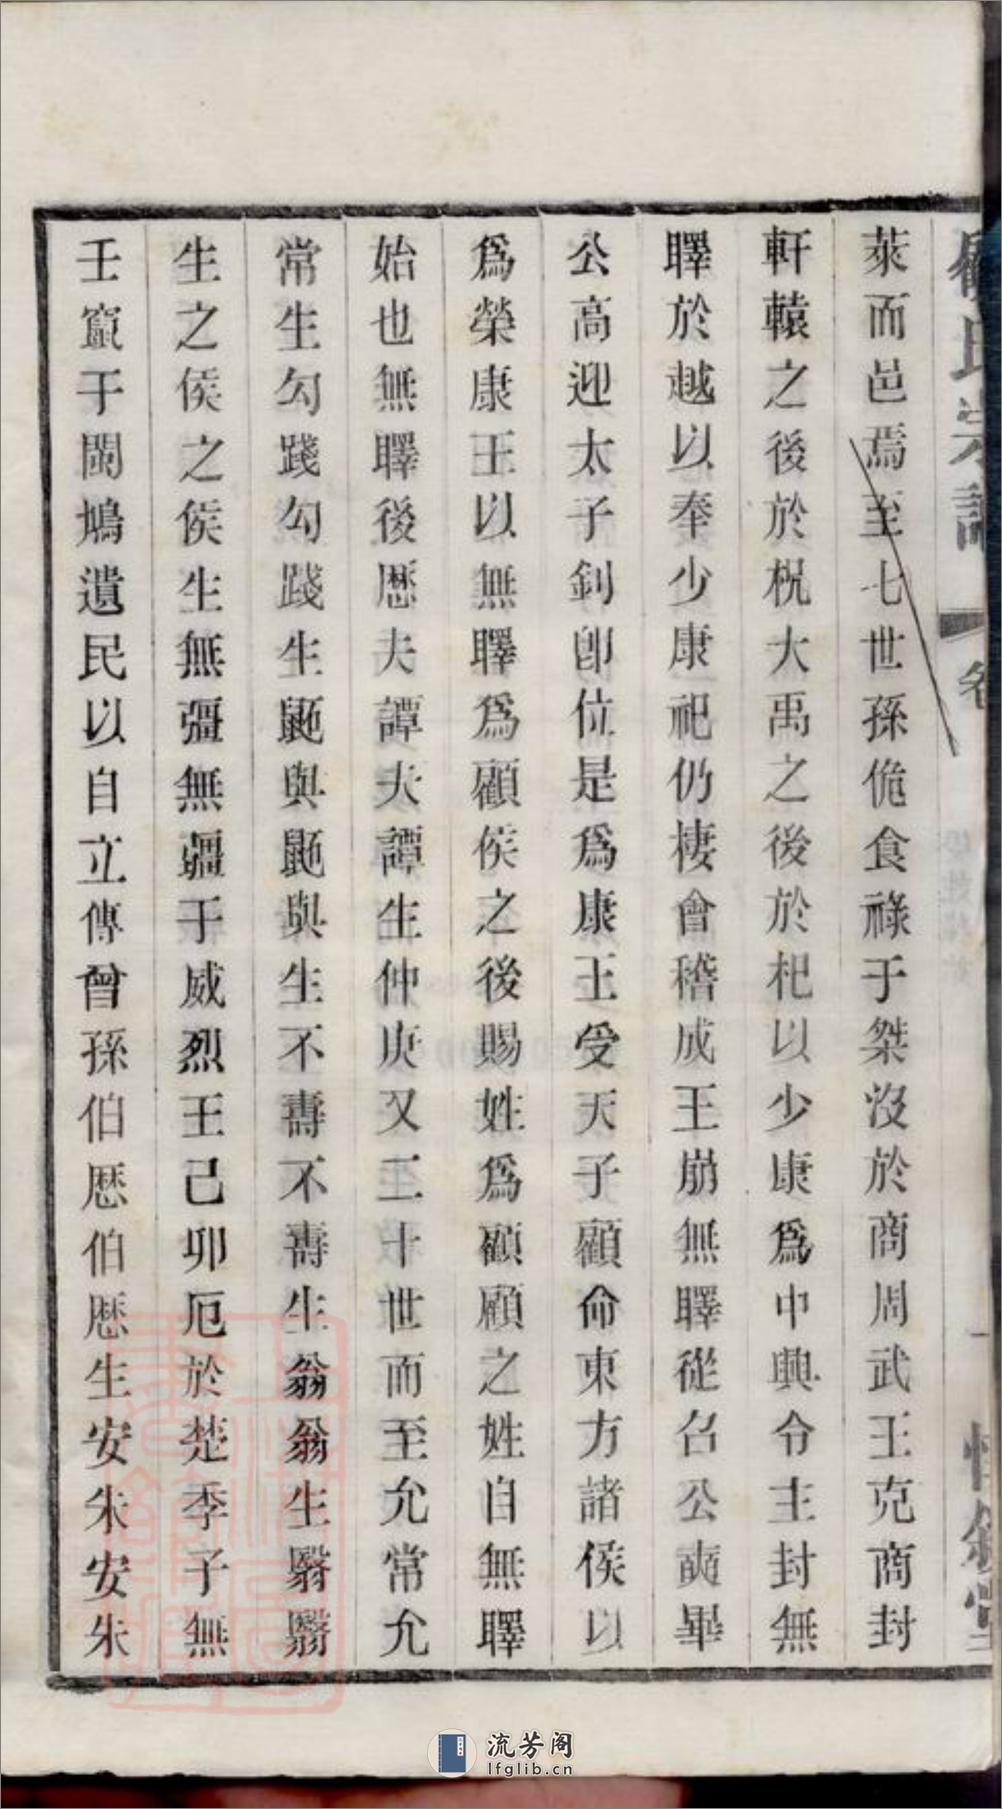 顧氏宗譜 卷 一
萊而邑焉至七世孫佹食祿于桀沒於商周武王克商封
軒轅之後於柷大禹之後於杞以少康爲中興令主封無
睪於越以奉少康祀仍棲會稽成王崩無睪從召公奭畢
公高迎太子釗卽位是爲康王受天子顧命東方諸侯以
爲榮康王以無睪爲顧侯之後賜姓爲顧顧之姓自無睪
始也無睪後歷夫譚夫譚生仲庚又二十世而至允常允
常生勾踐勾踐生鼫與鼫與生不壽不壽生翁翁生翳翳
生之侯之侯生無彊無疆于威烈王己卯厄於楚季子無
壬竄于閩鳩遺民以自立傳曾孫伯歷伯歷生安朱安朱
流芳阁
lfglib.cn